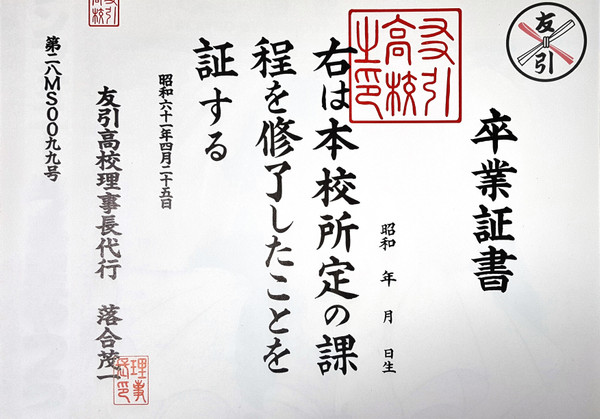 友引
卒業証書
昭和 年 月 日生
友引
高校
之印
右は本校所定の課
程を修了したことを
証する
昭和六十一年四月二十五日
友引高校理事長代行 落合茂一
理事
之印
第二八MS00九九号
友引
高校